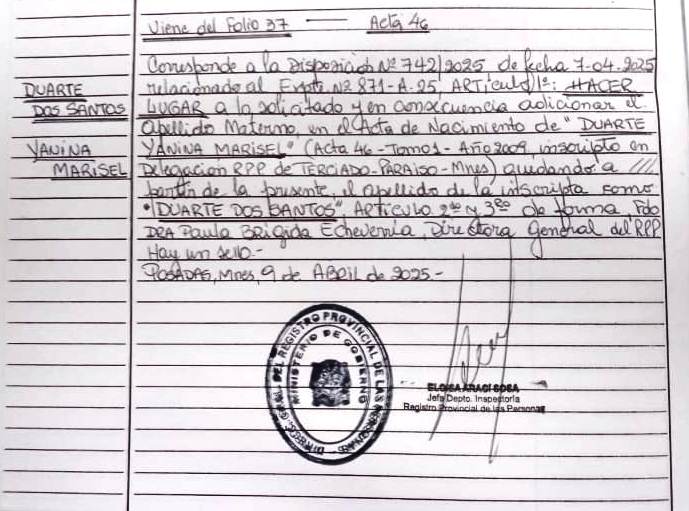 Viene del Folio 37 — Acta 46
Corresponde a la Disposición Nº 742/2025 de fecha 7-04-2025
relacionado al Expte. Nº 871-A-25, ARTículo 1º: HACER
LUGAR a lo solicitado y en consecuencia adicionar el
apellido Materno, en el Acta de Nacimiento de "DUARTE
YANINA MARISEL" (Acta 46 - Tomo 1 - Año 2009, inscripto en
Delegacion RPP de TERCIADO - PARAISO - Mnes) quedando a ////
partir de la presente, el apellido de la inscripta como
"DUARTE DOS SANTOS", ARTículo 2do y 3ro de forma, Fdo
DRA Paula Brigida Echeverria, Directora General del RPP
Hay un sello.-
POSADAS, Mnes, 9 de ABRIL de 2025-
DUARTE
DOS SANTOS
YANINA
MARISEL
DIRECC. GRAL. DEL REGISTRO PROVINCIAL DE LAS PERSONAS
MINISTERIO DE GOBIERNO
ELOISA ARACI SOSA
Jefa Depto. Inspectoria
Registro Provincial de las Personas